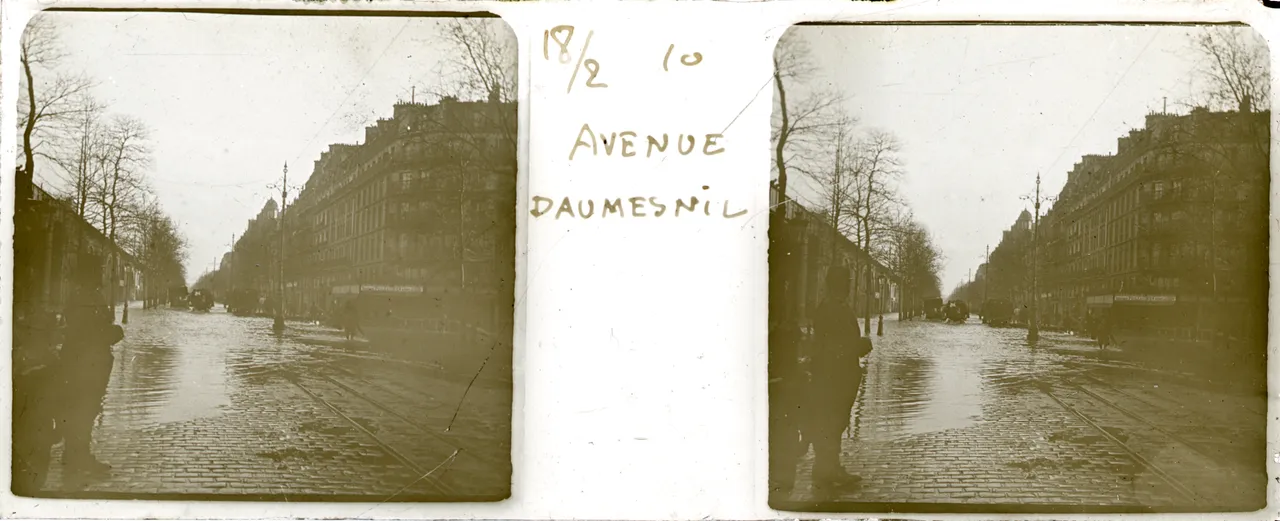 18/2 10
AVENUE
DAUMESNIL